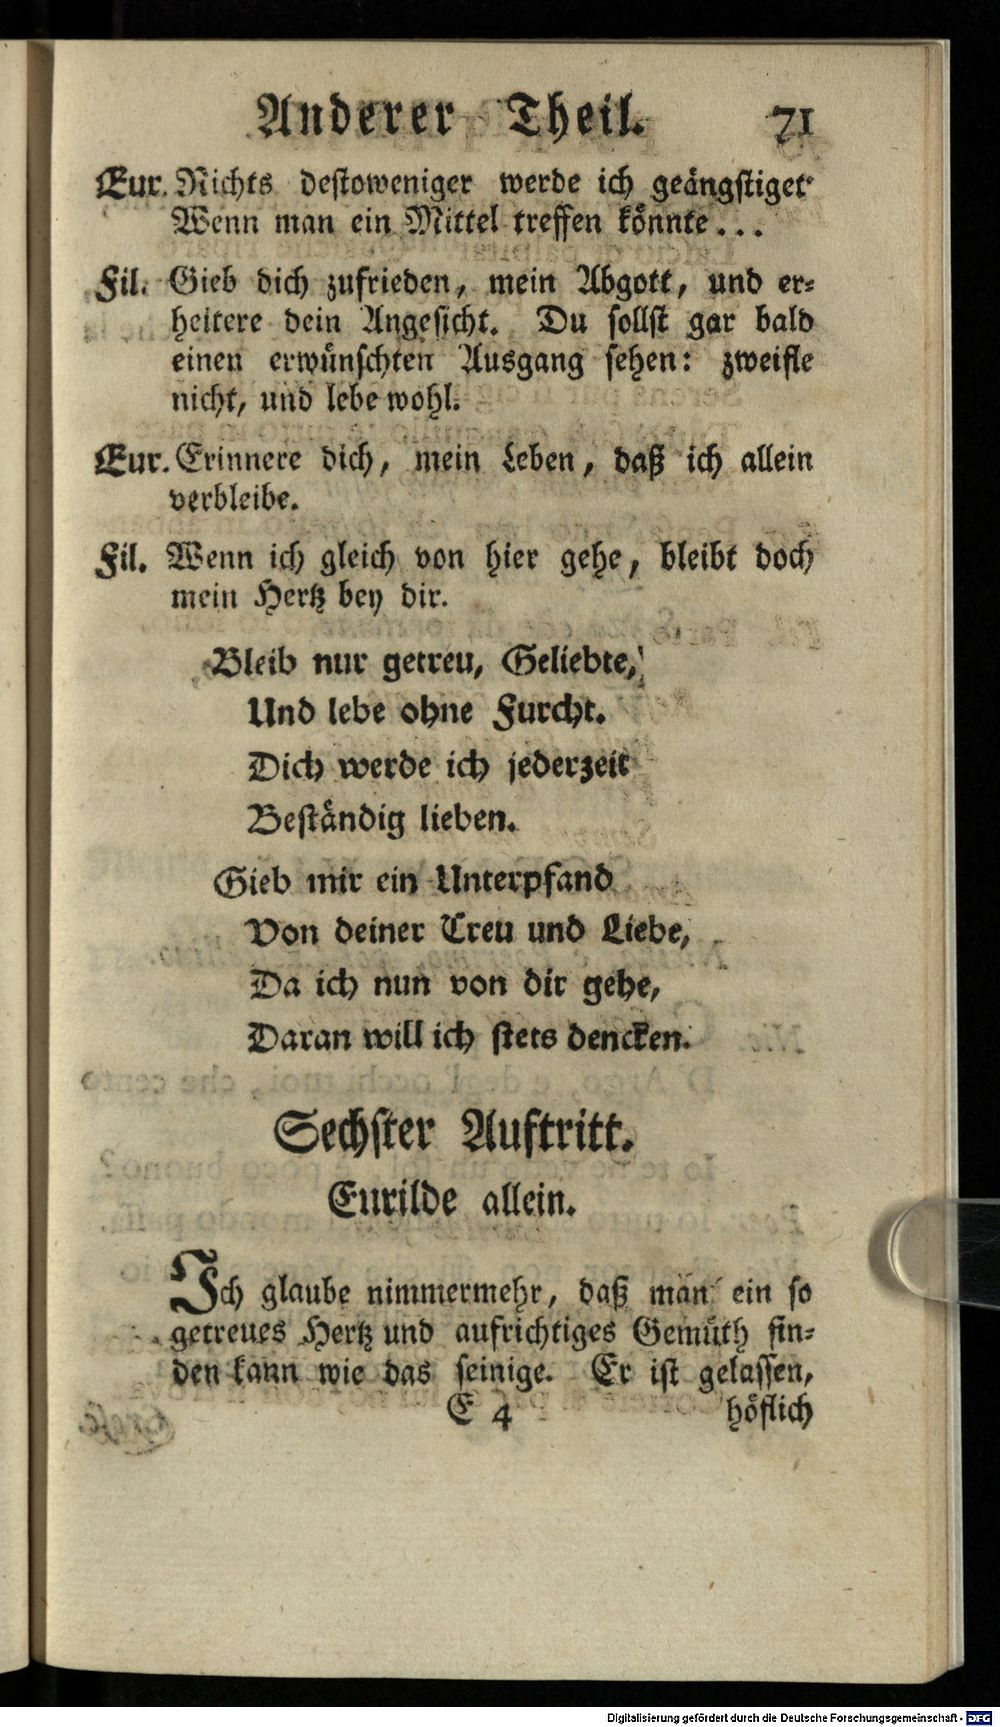 Anderer Theil. 71
Eur. Nichts destoweniger werde ich geängstiget
Wenn man ein Mittel treffen könnte...
Fil. Gieb dich zufrieden, mein Abgott, und er-
heitere dein Angesicht. Du sollst gar bald
einen erwünschten Ausgang sehen: zweifle
nicht, und lebe wohl.
Eur. Erinnere dich, mein Leben, daß ich allein
verbleibe.
Fil. Wenn ich gleich von hier gehe, bleibt doch
mein Hertz bey dir.
Bleib nur getreu, Geliebte,
Und lebe ohne Furcht.
Dich werde ich jederzeit
Beständig lieben.
Gieb mir ein Unterpfand
Von deiner Treu und Liebe,
Da ich nun von dir gehe,
Daran will ich stets dencken.
Sechster Auftritt.
Eurilde allein.
Ich glaube nimmermehr, daß man ein so
getreues Hertz und aufrichtiges Gemüth fin-
den kann wie das seinige. Er ist gelassen,
E 4 höflich
Digitalisierung gefördert durch die Deutsche Forschungsgemeinschaft - DFG